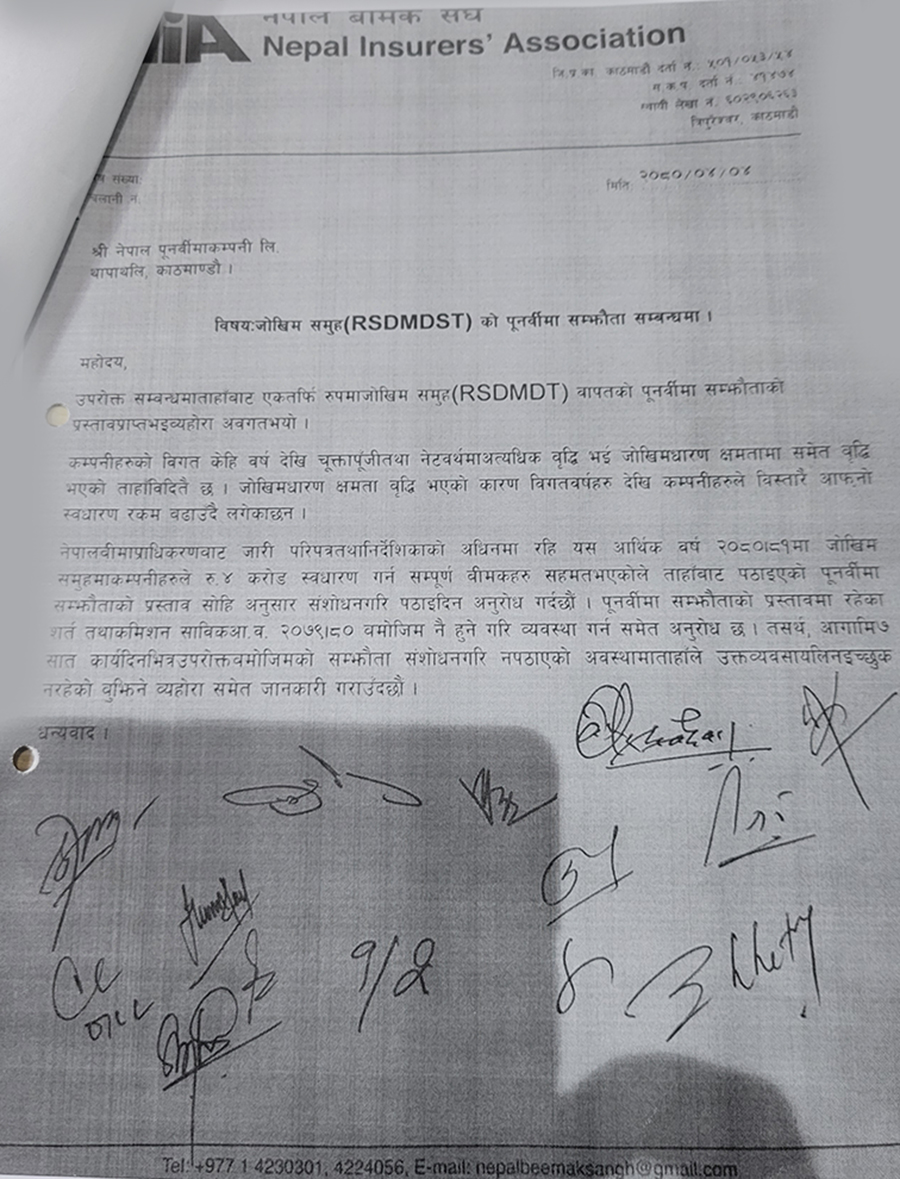 नेपाल बीमक संघ
NIA Nepal Insurers' Association
जि.प्र.का. काठमाडौं दर्ता नं. ५०१/०५३/५४
म.क.प. दर्ता नं. ४१४७४
स्थायी लेखा नं. ६०२९०६२६३
त्रिपुरेश्वर, काठमाडौं
संख्या:
चलानी नं.
मिति: २०८०/०४/०४
श्री नेपाल पूनर्वीमाकम्पनी लि.
थापाथलि, काठमाण्डौ ।
विषय:जोखिम समुह(RSDMDST) को पूनर्वीमा सम्झौता सम्बन्धमा ।
महोदय,
उपरोक्त सम्बन्धमाताहाँबाट एकतर्फि रुपमाजोखिम समुह(RSDMDT) वापतको पूनर्वीमा सम्झौताको
प्रस्तावप्राप्तभइव्यहोरा अवगतभयो ।
कम्पनीहरुको विगत केहि वर्ष देखि चूक्तापूंजीतथा नेटवर्थमाअत्यधिक वृद्धि भई जोखिमधारण क्षमतामा समेत वृद्धि
भएको ताहाँविदितै छ । जोखिमधारण क्षमता वृद्धि भएको कारण विगतवर्षहरु देखि कम्पनीहरुले विस्तारै आफ्नो
स्वधारण रकम बढाउँदै लगेकाछन ।
नेपालवीमाप्राधिकरणवाट जारी परिपत्रतथानिर्देशिकाको अधिनमा रहि यस आर्थिक वर्ष २०८०।८१मा जोखिम
समुहमाकम्पनीहरुले रु.४ करोड स्वधारण गर्न सम्पूर्ण बीमकहरु सहमतभएकोले ताहाँवाट पठाइएको पूनर्वीमा
सम्झौताको प्रस्ताव सोहि अनुसार संशोधनगरि पठाइदिन अनुरोध गर्दछौं । पूनर्वीमा सम्झौताको प्रस्तावमा रहेका
शर्त तथाकमिशन साविकआ.व. २०७९।८० वमोजिम नै हुने गरि व्यवस्था गर्न समेत अनुरोध छ । तसर्थ, आगामि७
सात कार्यदिनभित्रउपरोक्तवमोजिमको सम्झौता संशोधनगरि नपठाएको अवस्थामाताहाँले उक्तव्यवसायलिनइच्छुक
नरहेको वुझिने व्यहोरा समेत जानकारी गराउँदछौं ।
धन्यवाद ।
Tel: +977 1 4230301, 4224056, E-mail: nepalbeemaksangh@gmail.com